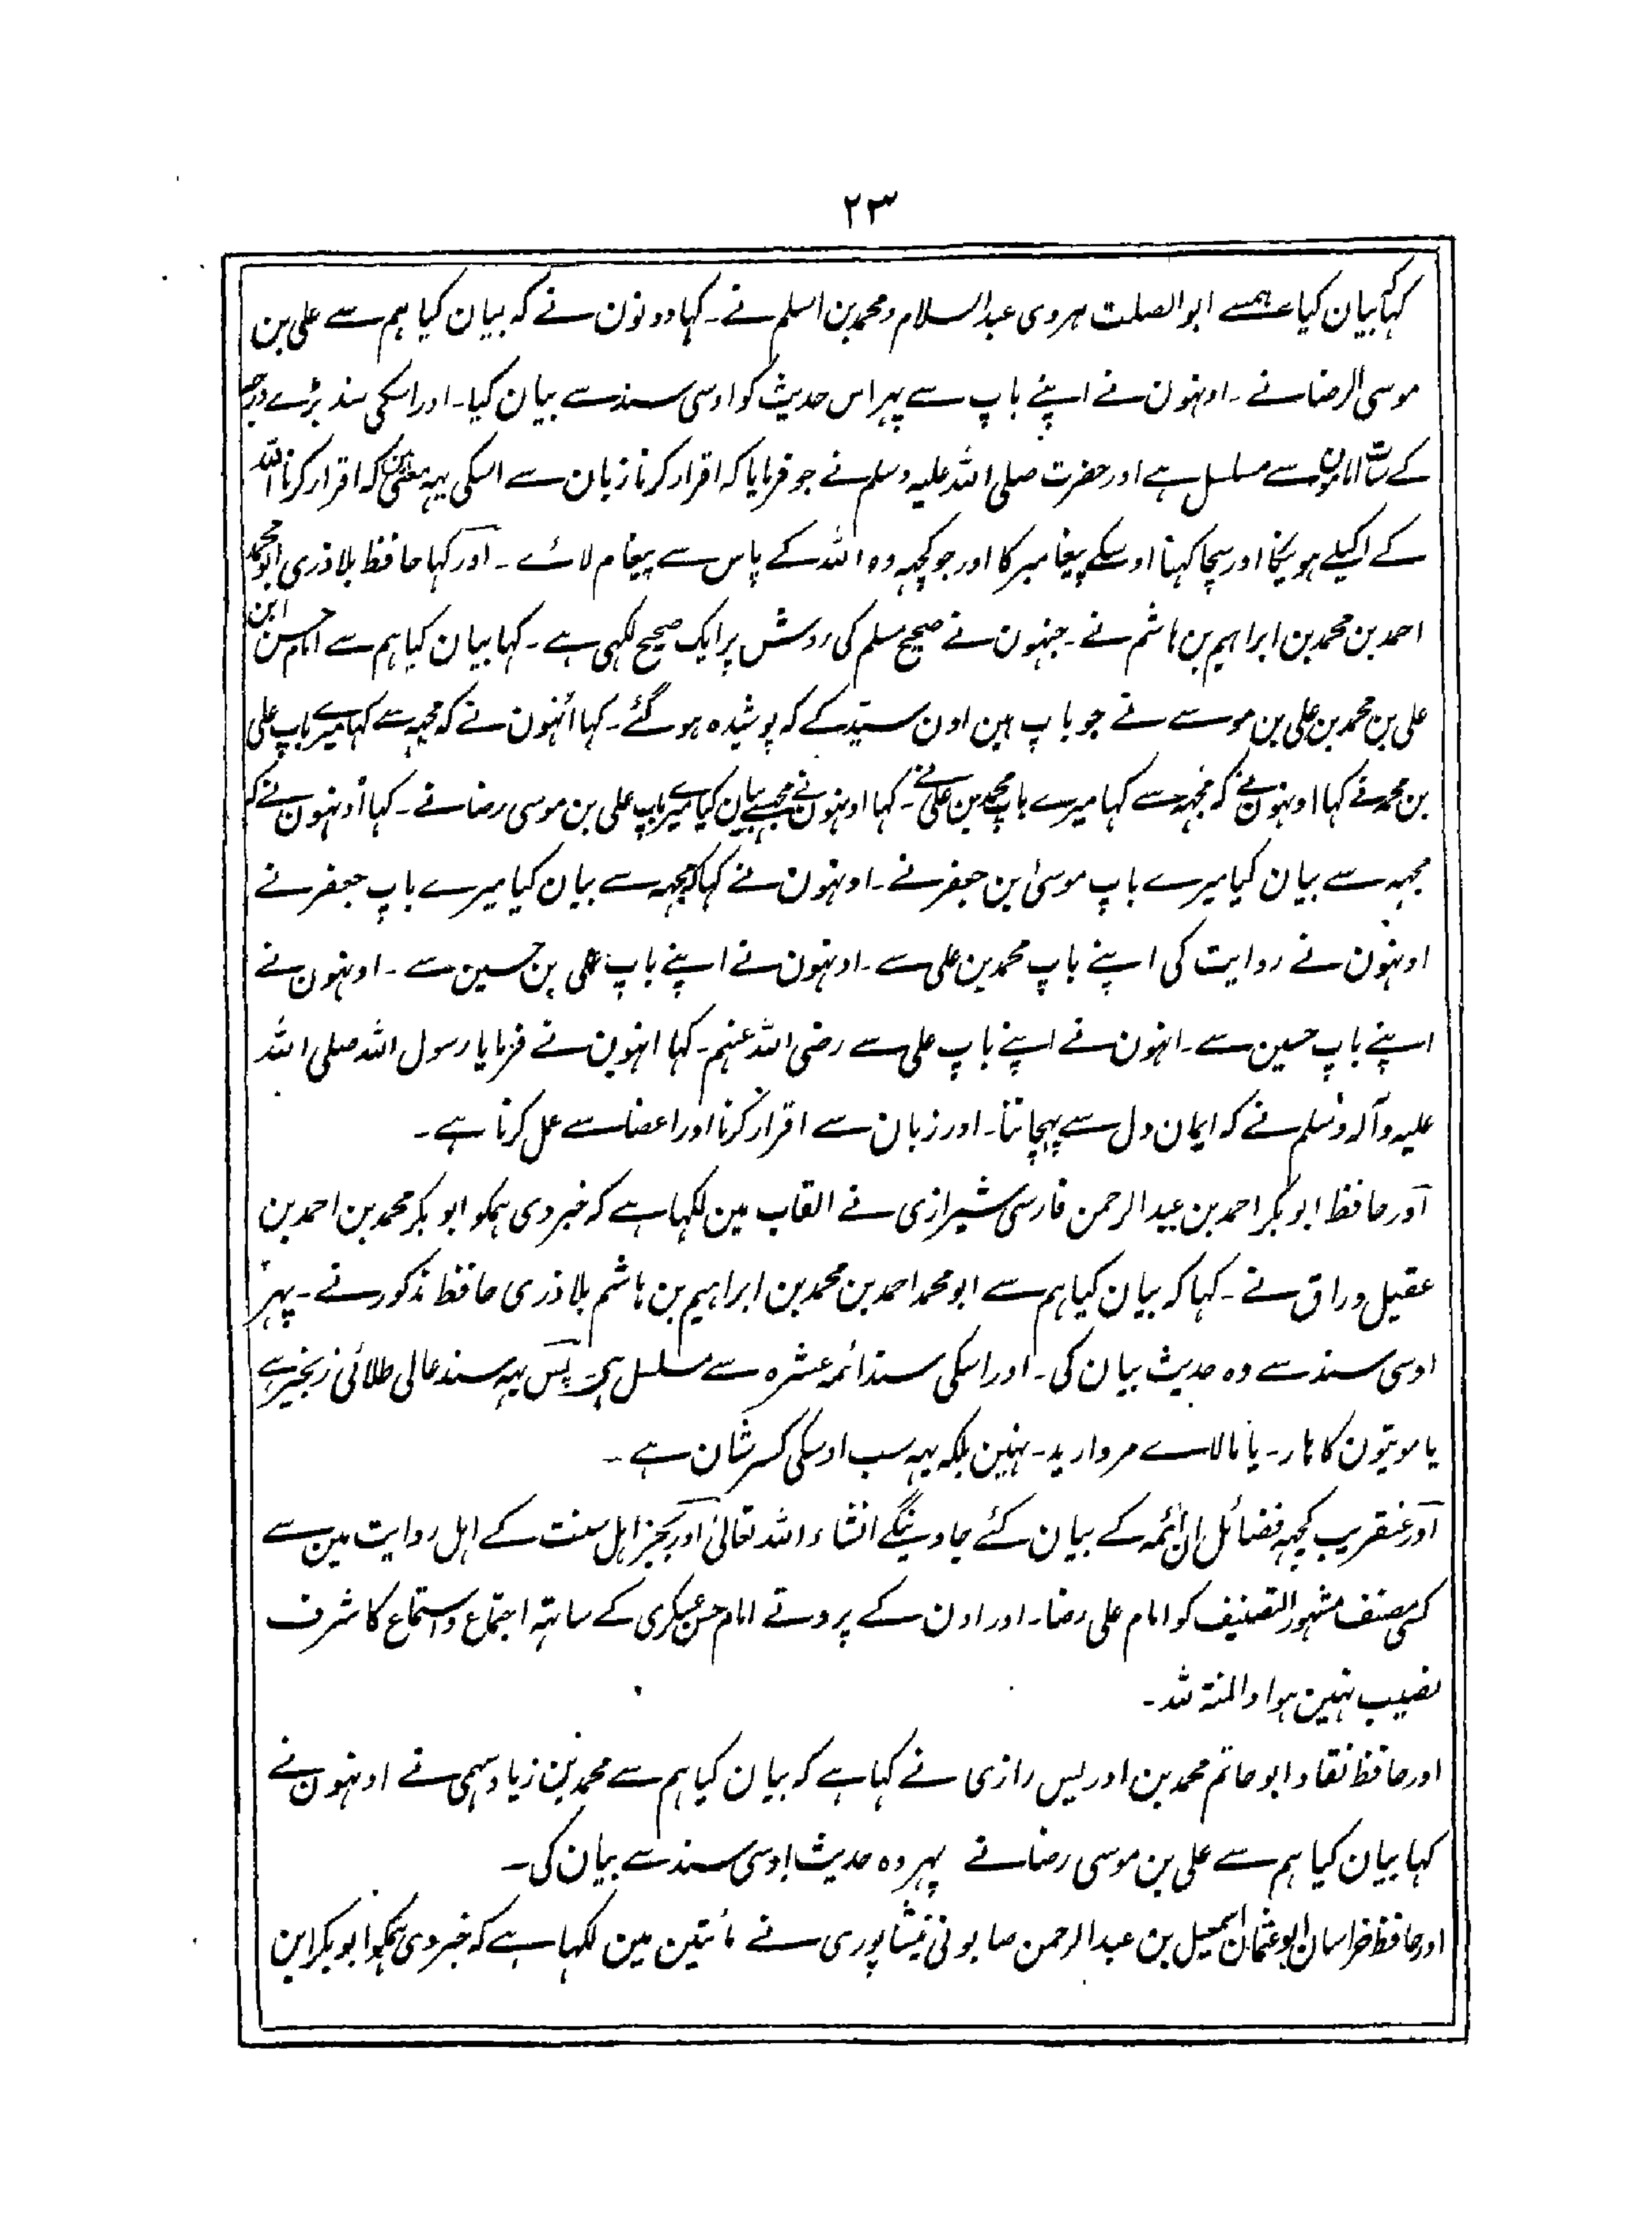 ۲۳
کہا بیان کیا ہمسے ابو الصلت ہروی عبد السلام و محمد بن اسلم نے۔ کہا دونون نے کہ بیان کیا ہم سے علی بن
موسی الرضا نے۔ اونہون نے اپنے باپ سے پہر اس حدیث کو اوسی سند سے بیان کیا۔ اور اسکی سند بڑے درجہ
کے امامون سے مسلسل ہے اور حضرت صلی اللہ علیہ وسلم نے جو فرمایا کہ اقرار کرنا زبان سے اسکی یہہ معنی ہین کہ اقرار کرنا اللہ
کے اکیلے ہونیکا اور سچا کہنا اوسکے پیغامبر کا اور جو کچہہ وہ اللہ کے پاس سے پیغام لائے۔ اور کہا حافظ بلاذری ابو محمد
احمد بن محمد بن ابراہیم بن ہاشم نے۔ جنہون نے صحیح مسلم کی روش پر ایک صحیح لکہی ہے۔ کہا بیان کیا ہم سے امام حسن ابن
علی بن محمد بن علی بن موسے نے جو باپ ہین اون سیّد کے کہ پوشیدہ ہو گئے۔ کہا اُنہون نے کہ مجہہ سے کہا میرے باپ علی
بن محمد نے کہا اونہون نے کہ مجہہ سے کہا میرے باپ محمد بن علی نے۔ کہا اونہون نے مجہسے بیان کیا میرے باپ علی بن موسی رضا نے۔ کہا اُونہون نے کہ
مجہہ سے بیان کیا میرے باپ موسیٰ بن جعفر نے۔ اونہون نے کہا کہ مجہہ سے بیان کیا میرے باپ جعفر نے
اونہون نے روایت کی اپنے باپ محمد بن علی سے۔ اونہون نے اپنے باپ علی بن حسین سے۔ اونہون نے
اپنے باپ حسین سے۔ انہون نے اپنے باپ علی سے رضی اللہ عنہم۔ کہا انہون نے فرمایا رسول اللہ صلی اللہ
علیہ وآلہ وسلم نے کہ ایمان دل سے پہچاننا۔ اور زبان سے اقرار کرنا اور اعضا سے عمل کرنا ہے۔
اور حافظ ابو بکر احمد بن عبد الرحمن فارسی شیرازی نے القاب مین لکہا ہے کہ خبر دی ہمکو ابو بکر محمد بن احمد بن
عقیل وراق نے۔ کہا کہ بیان کیا ہم سے ابو محمد احمد بن محمد بن ابراہیم بن ہاشم بلاذری حافظ مذکور نے۔ پہر
اوسی سند سے وہ حدیث بیان کی۔ اور اسکی سند ائمہ عشرہ سے مسلسل ہی پس یہہ سند عالی طلائی زنجیر ہے
یا موتیون کا ہار۔ یا مالاے مروارید۔ نہین بلکہ یہہ سب اوسکی کسر شان ہے۔
اور عنقریب کچہہ فضائل ان ائمہ کے بیان کئے جاوینگے انشاء اللہ تعالیٰ اور بجز اہل سنت کے اہل روایت مین سے
کسی مصنف مشہور التصنیف کو امام علی رضا۔ اور اون کے پروتے امام حسن عسکری کے ساتہہ اجتماع و استماع کا شرف
نصیب نہین ہوا والمنۃ للہ۔
اور حافظ نقاد ابو حاتم محمد بن ادریس رازی نے کہا ہے کہ بیان کیا ہم سے محمد بن زیاد سہمی نے اونہون نے
کہا بیان کیا ہم سے علی بن موسی رضا نے پہر وہ حدیث اوسی سند سے بیان کی۔
اور حافظ خراسان ابو عثمان اسمعیل بن عبد الرحمن صابونی نیشاپوری نے مأتین مین لکہا ہے کہ خبر دی ہمکو ابو بکر ابن